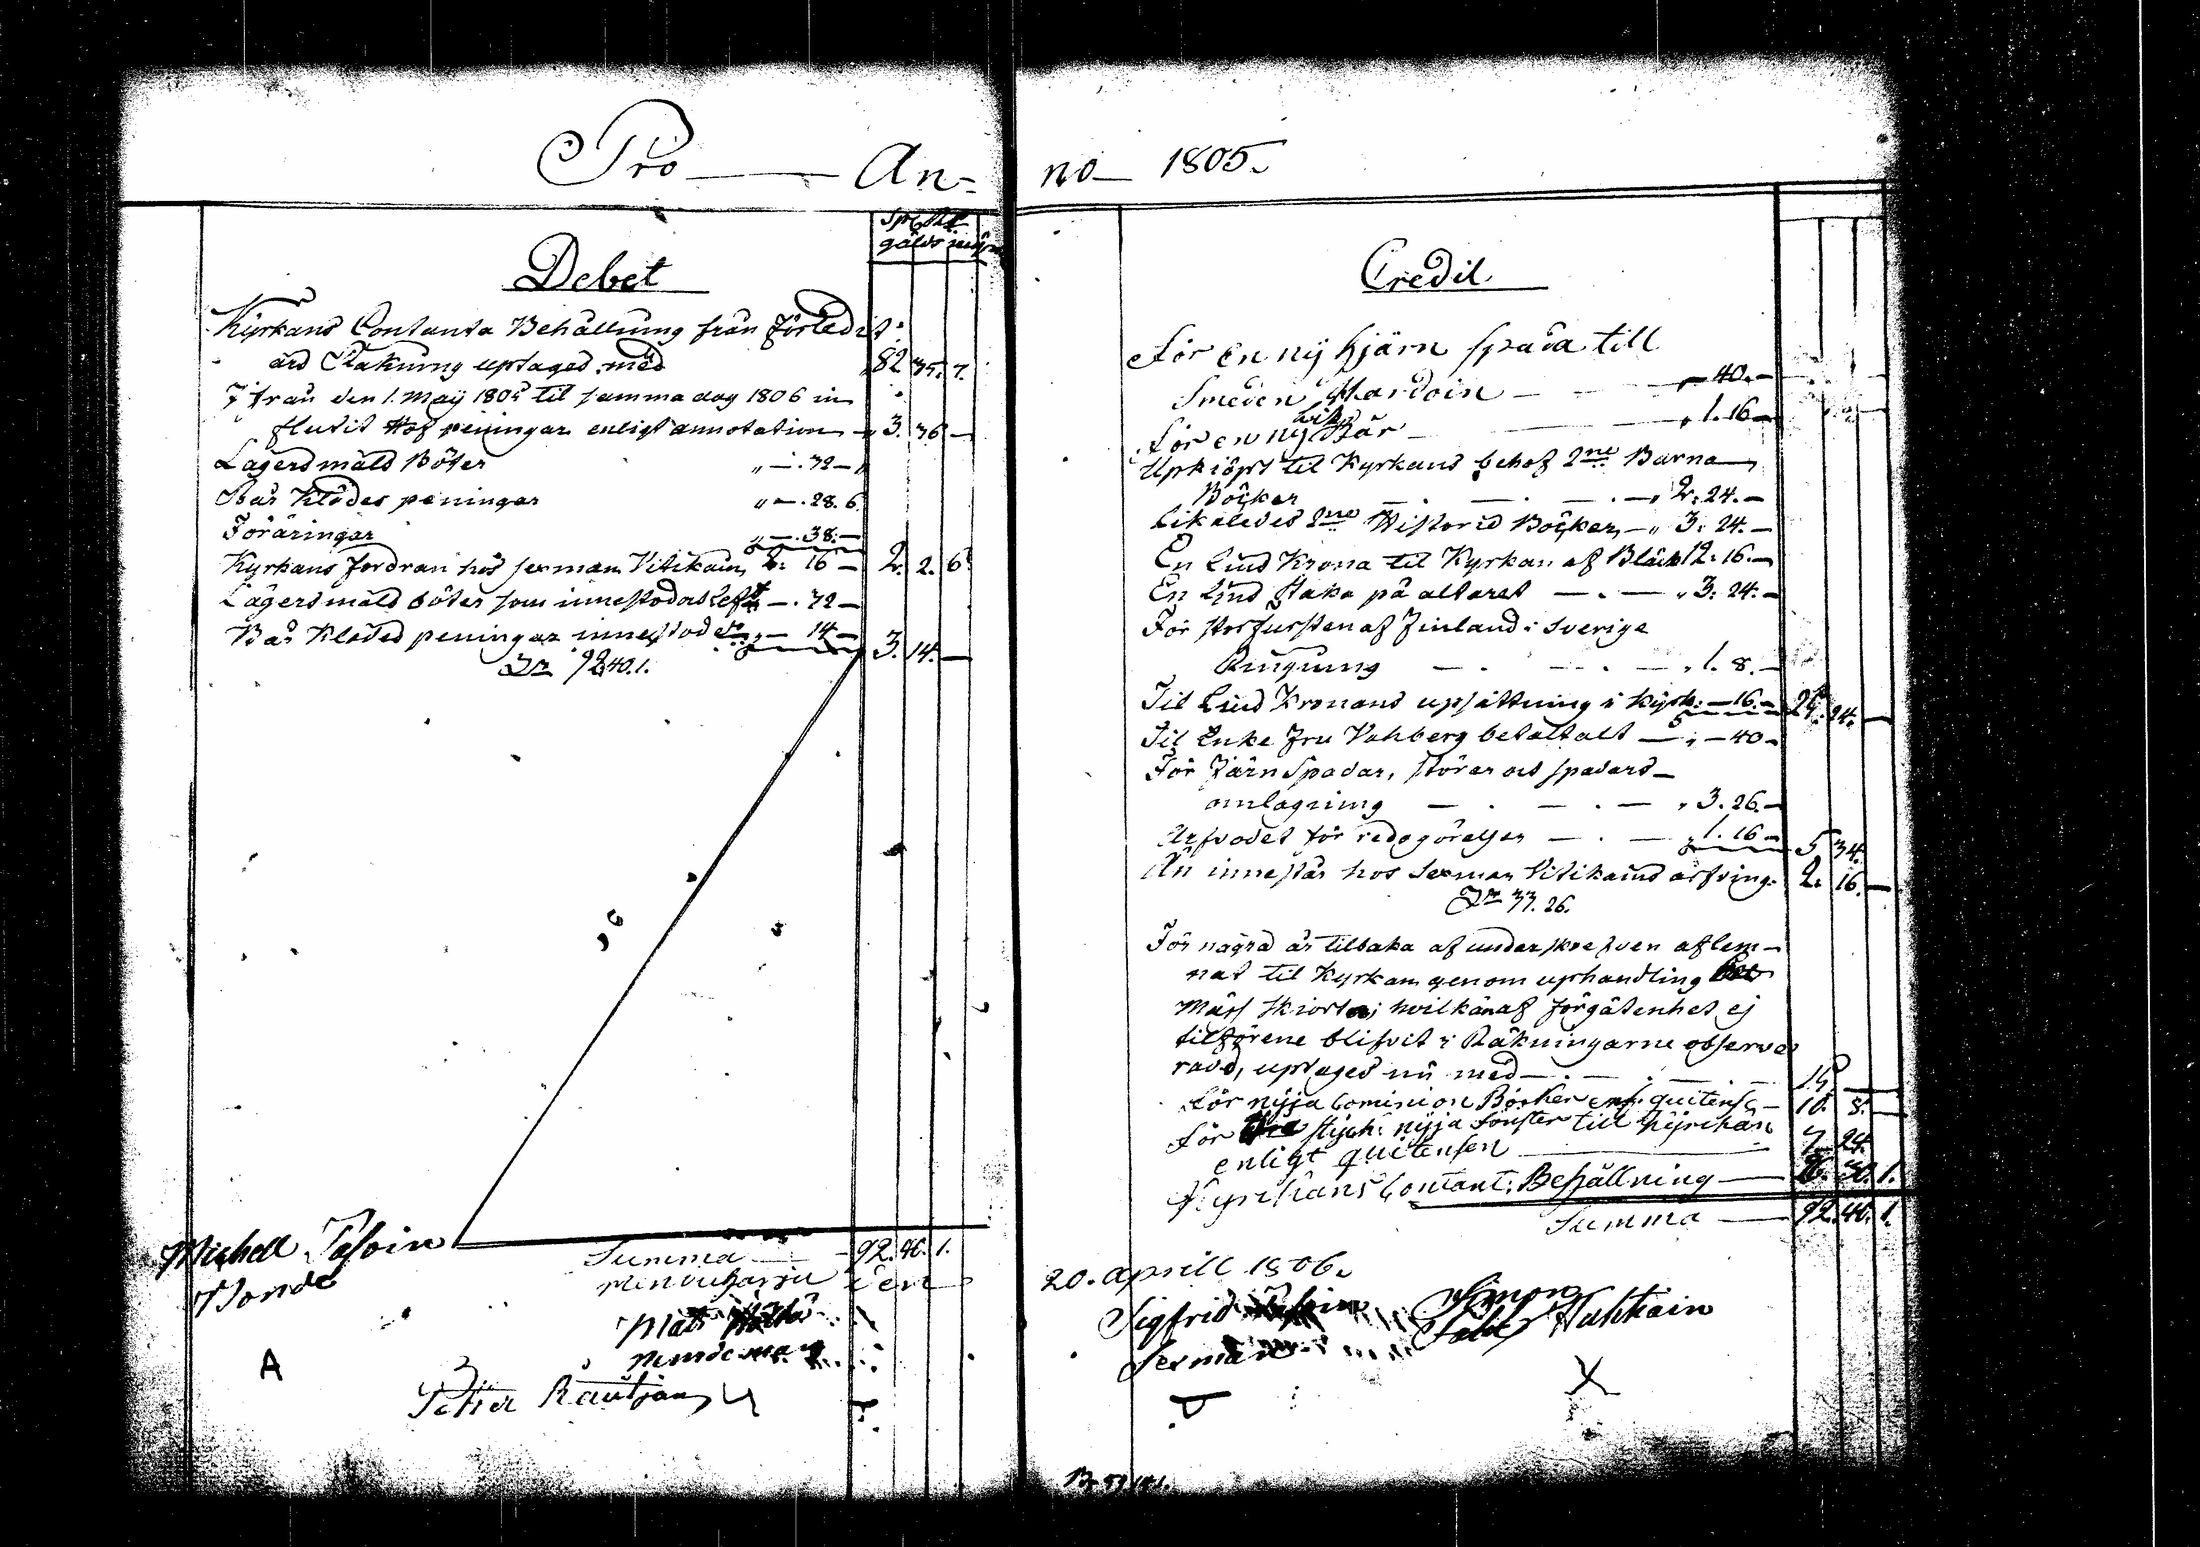 Pro — An-
Spec. Rd.
gälds mynt
Debet
Kyrkans Contanta Behållning från förledit
års Räkning uptages med 82 35. 7.
från den 1. Maij 1805 til samma dag 1806 in
flutit Hof peningar enligt annotation 3. 36 —
Lägersmåls Böter „ — . 32 —
Bår Klädes peningar „ — . 28. 6
Föräringar „ — . 38. —
Kyrkans fordran hos sexman Vitikain 2. 16 — 2. 2. 6
Lägersmåls böter som innestodos — . 32 —
Bår Klädes peningar innestod — 14 — 3. 14. —
92 40. 1.
Michell Tasoin
Bonde
Summa — 92. 40. 1.
Mats
Petter Rautjain
A
no — 1805.
Credit
För en ny hjärn spada till
Smeden Mardoin — 40. —
För en ny lik Bår „ 1. 16 —
Upkiöpt til Kyrkans behof 2ne Barna
Böcker — . — . — . — „ 2. 24. —
Likaledes 2ne Historie Böcker — „ 3. 24. —
En Liud Krona til Kyrkan af Bläck 12. 16. —
En Liud staka på altaret — . — „ 3. 24. —
För storfursten af Finland i Sverige
Ringning — . — . — „ 1. 8. —
Til Liud Kronans upsättning i Kyrk. — 16. — 25. 24. —
Til Enke Fru Vahberg betaltalt — „ — 40 —
För Järn Spadar, störar och spadars
omlagning — . — . — „ 3. 26. —
Arfvodet för redogörelsen — . — „ 1. 16 — 5 34.
Än innestår hos sexman Vitikains arfving. 2. 16. —
33. 26.
För några år tilbaka af underskrefven aflem-
nat til Kyrkan genom uphandling
Mäss skiorta; hvilken af förgätenhet ej
tilförene blifvit i Räkningarne observe
rad, uptages nu med — . —
För nyja Cominion Böcker enl. quitense — 10. 8. —
För styck: nyja fönster till Kyrckan
enligt quitensen — 7. 24.
Kyrckans Contant. Behållning — 1.
Summa — 92. 40. 1.
20. aprill 1806.
Sigfrid
Sexman
Simon
Huhtain
X